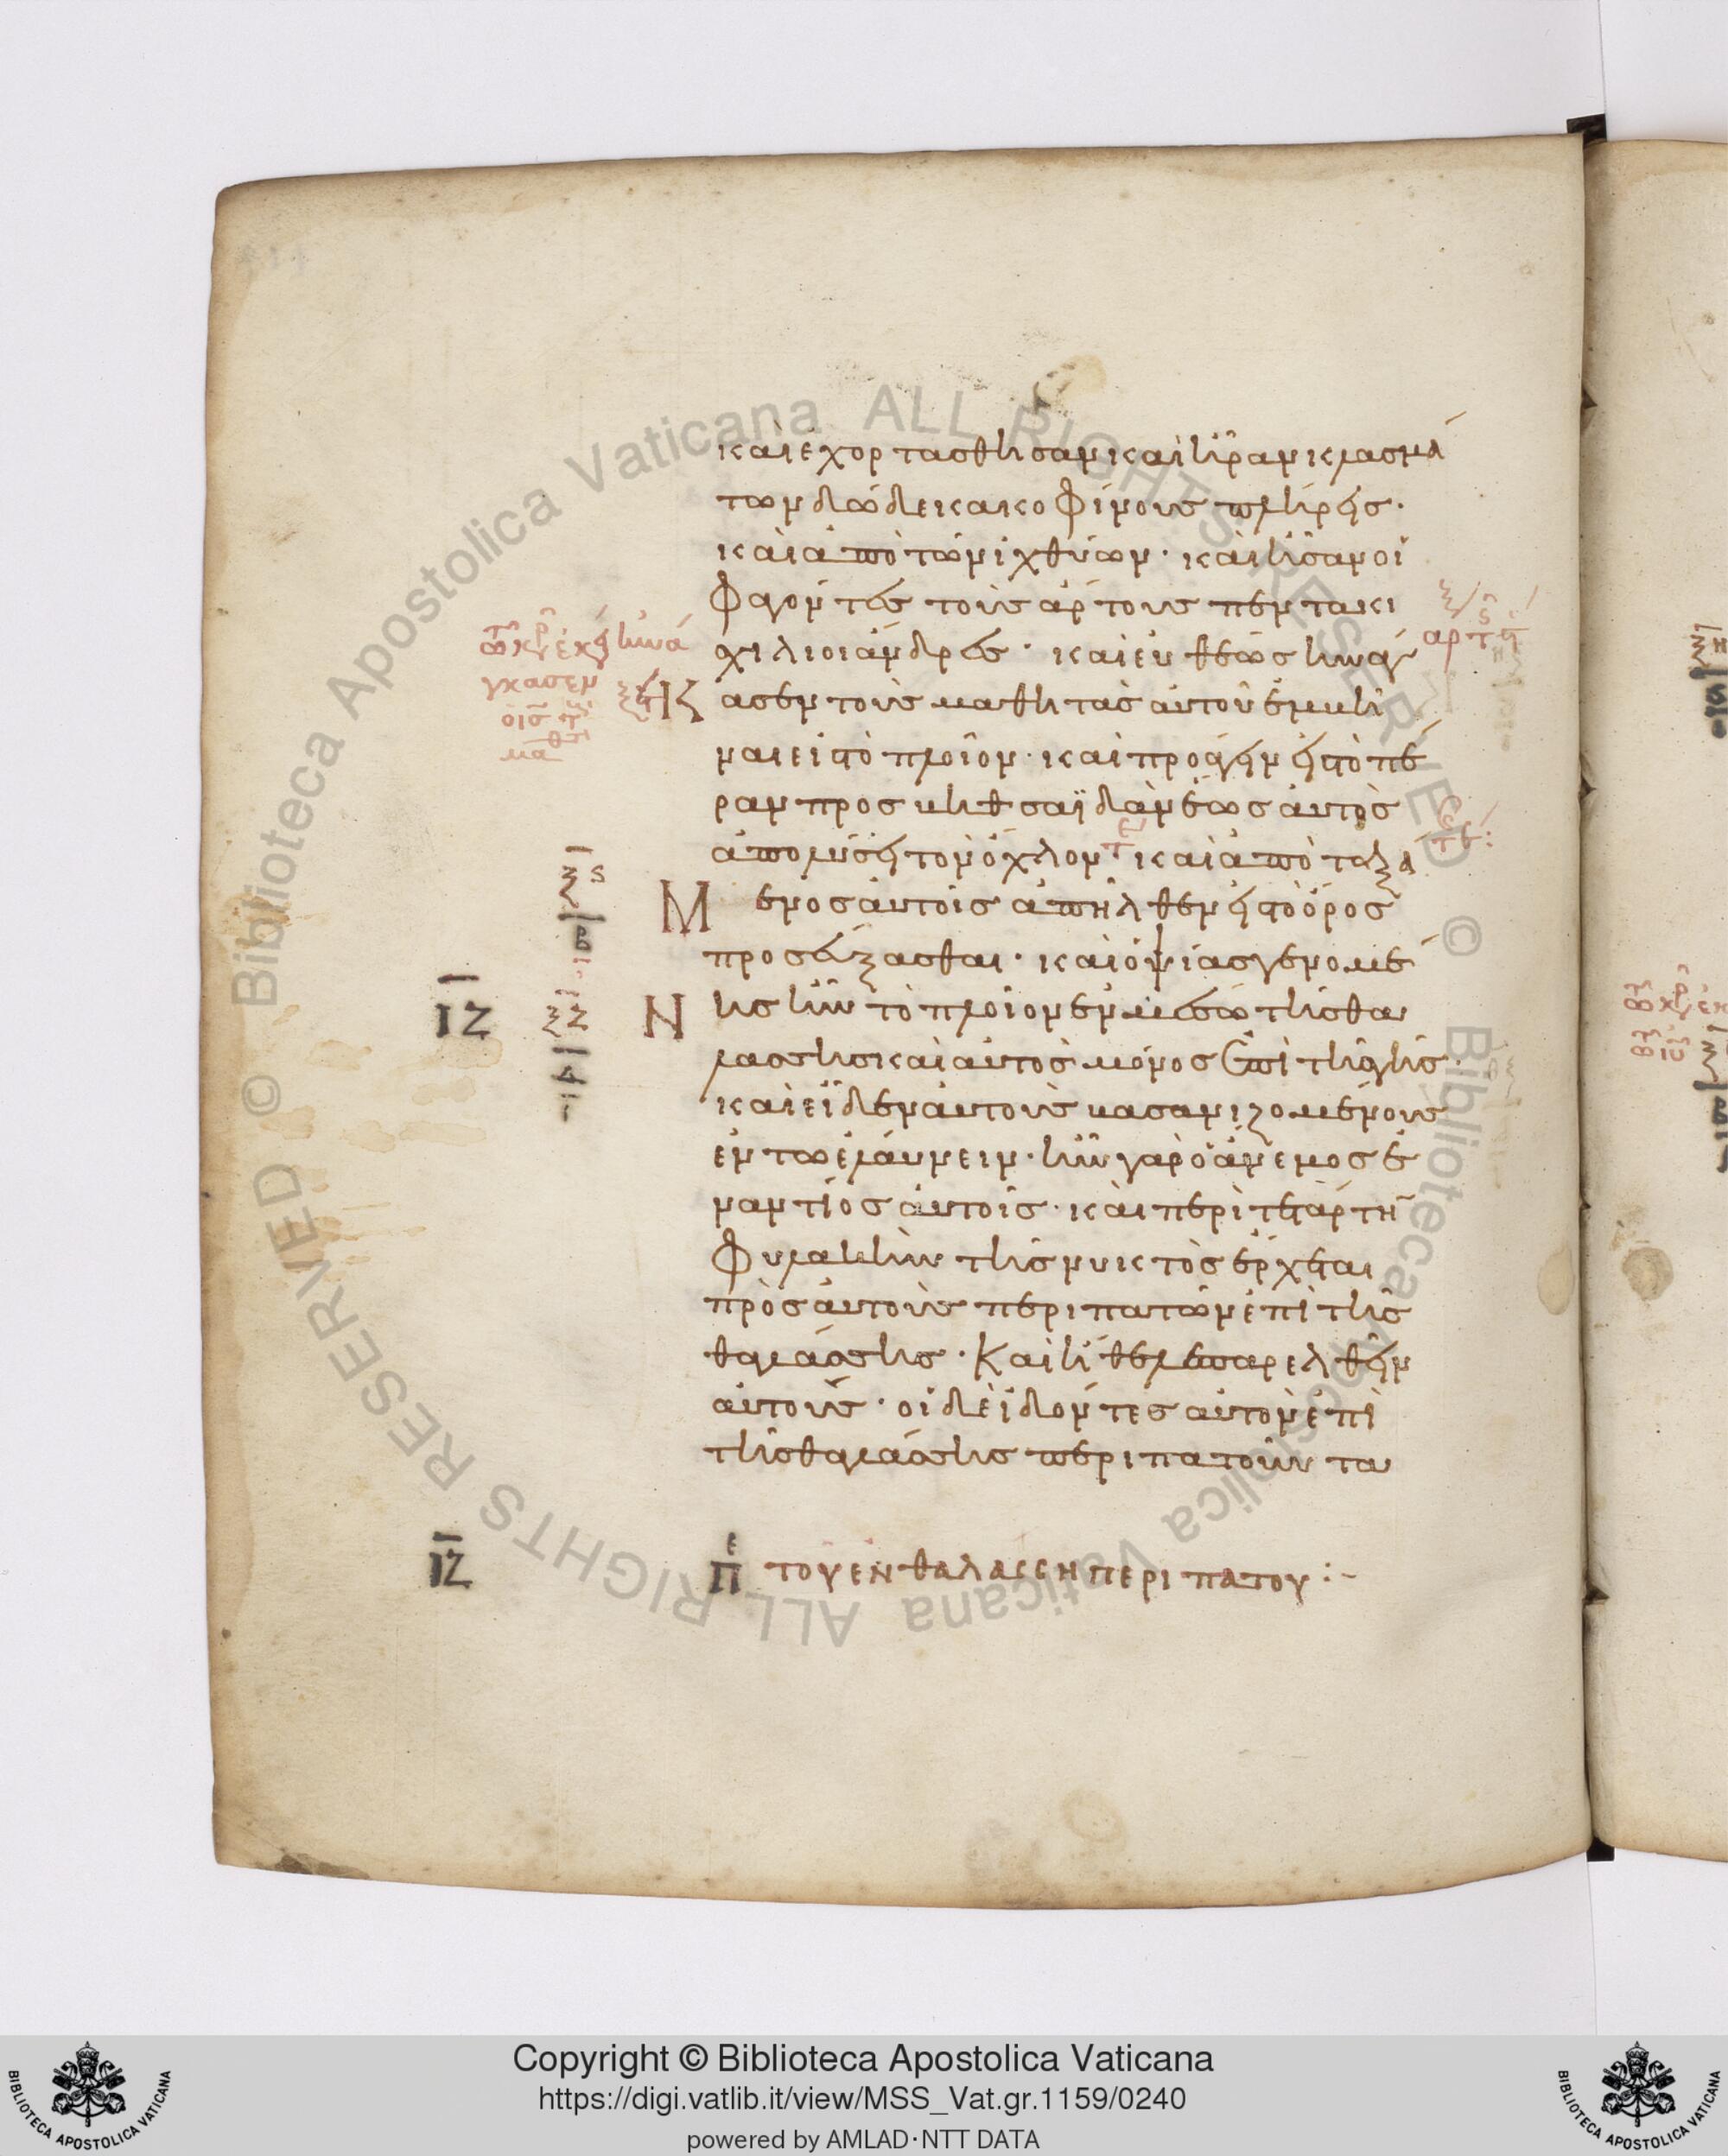 καὶ ἐχορτάσθησαν καὶ ἦραν κλασμά
των δώδεκα κοφίνους πλήρεις·
καὶ ἀπὸ τῶν ἰχθύων· καὶ ἦσαν οἱ
φαγόντες τοὺς ἄρτους πεντακι
χίλιοι ἄνδρες· καὶ εὐθέως ἠνάγ
ασεν τοὺς μαθητὰς αὐτοῦ ἐμβῆ
ναι εἰς τὸ πλοῖον· καὶ προάγειν εἰς τὸ πέ
ραν προς βηθσαϊδὰν ἕως αὐτὸς
ἀπολύσει τὸν ὄχλον· καὶ ἀποταξά
Μ ενος αὐτοῖς ἀπῆλθεν εἰς τὸ ὄρος
προσεύξασθαι· καὶ ὀψίας γενομέ
ΙΖ Ν ης ἦν τὸ πλοῖον ἐν μέσω τῆς θα
λασσης καὶ αὐτὸς μόνος ἐπὶ τῆς γῆς·
καὶ εἶδεν αὐτοὺς βασανιζομένους
ἐν τω ἐλάυνειν· ἦν γὰρ ὁ ἄνεμος ἐ
ναντίος αὐτοῖς· καὶ περὶ τετάρτην
φυλακὴν τῆς νυκτὸς ἔρχεται
πρὸς αὐτοὺς περιπατῶν ἐπὶ τῆς
θαλάσσης· Καὶ ἤθελεν παρελθεῖν
αὐτούς· οἱ δὲ ἰδόντες αὐτὸν ἐπὶ
τῆς θαλάσσης περιπατοῦντα
ΙΖ Πε ΤΟΥ ΕΝ ΘΑΛΑССΗ ΠΕΡΙΠΑΤΟΥ:-
© Biblioteca Apostolica Vaticana ALL RIGHTS RESERVED
© Biblioteca Apostolica Vaticana ALL RIGHTS RESERVED
BIBLIOTECA APOSTOLICA VATICANA
Copyright © Biblioteca Apostolica Vaticana
https://digi.vatlib.it/view/MSS_Vat.gr.1159/0240
powered by AMLAD·NTT DATA
BIBLIOTECA APOSTOLICA VATICANA